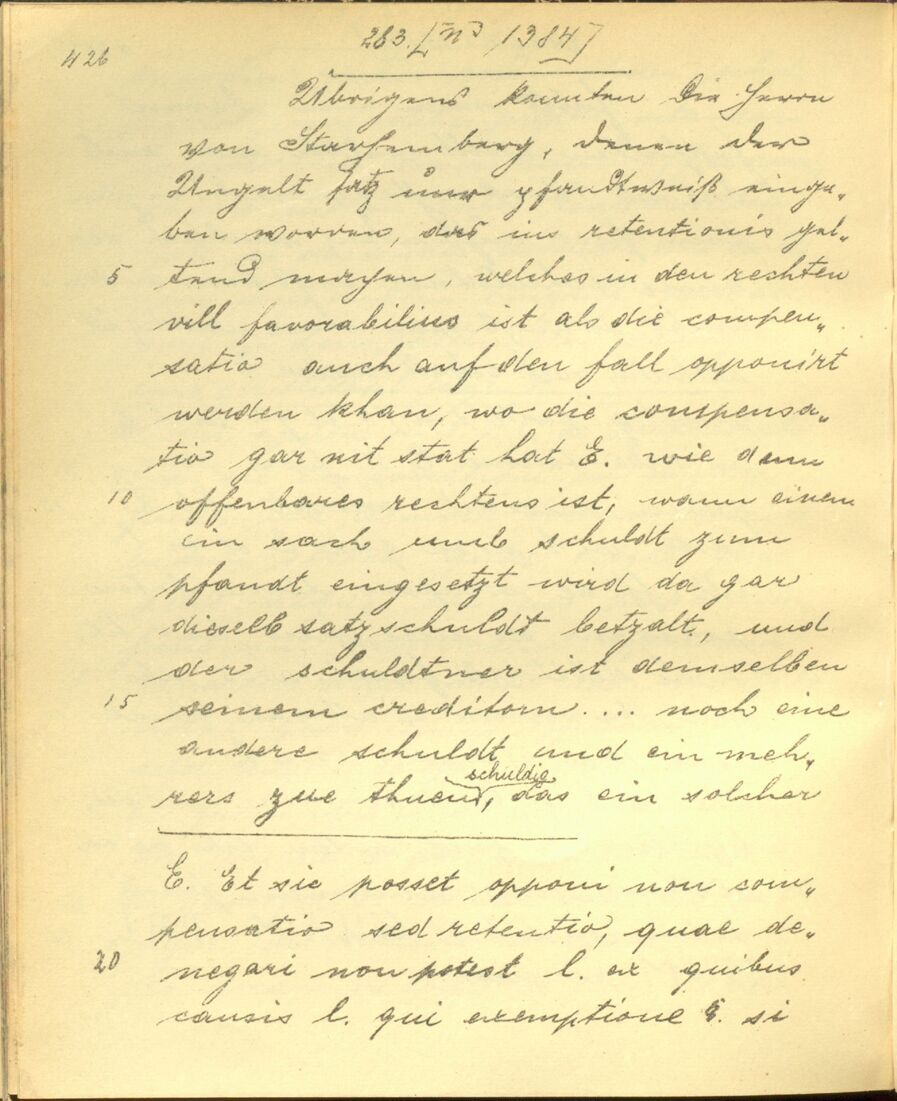 426
283. [nº 1384]
Übrigens konnten die Herrn
von Starhemberg, denen der
Ungelt satz nur pfandtweiß einge„
ben worren, das ius retentionis gel„
5 tend machen, welches in den rechten
vill favorabilius ist als die compen„
satio auch auf den fall opponirt
werden khan, wo die compensa„
tio gar nit stat hat E. wie dann
10 offenbares rechtens ist, wann einem
ein sach umb schuldt zum
pfandt eingesetzt wird da gar
dieselb satzschuldt betzalt, und
der schuldtner ist demselben
15 seinem creditorn .... noch eine
andere schuldt und ein meh„
schuldig
rers zue thuend, das ein solcher
E. Et sic posset opponi non com„
pensatio sed retentio, quae de„
20 negari non potest l. ex quibus
causis l. qui exemptione §. si